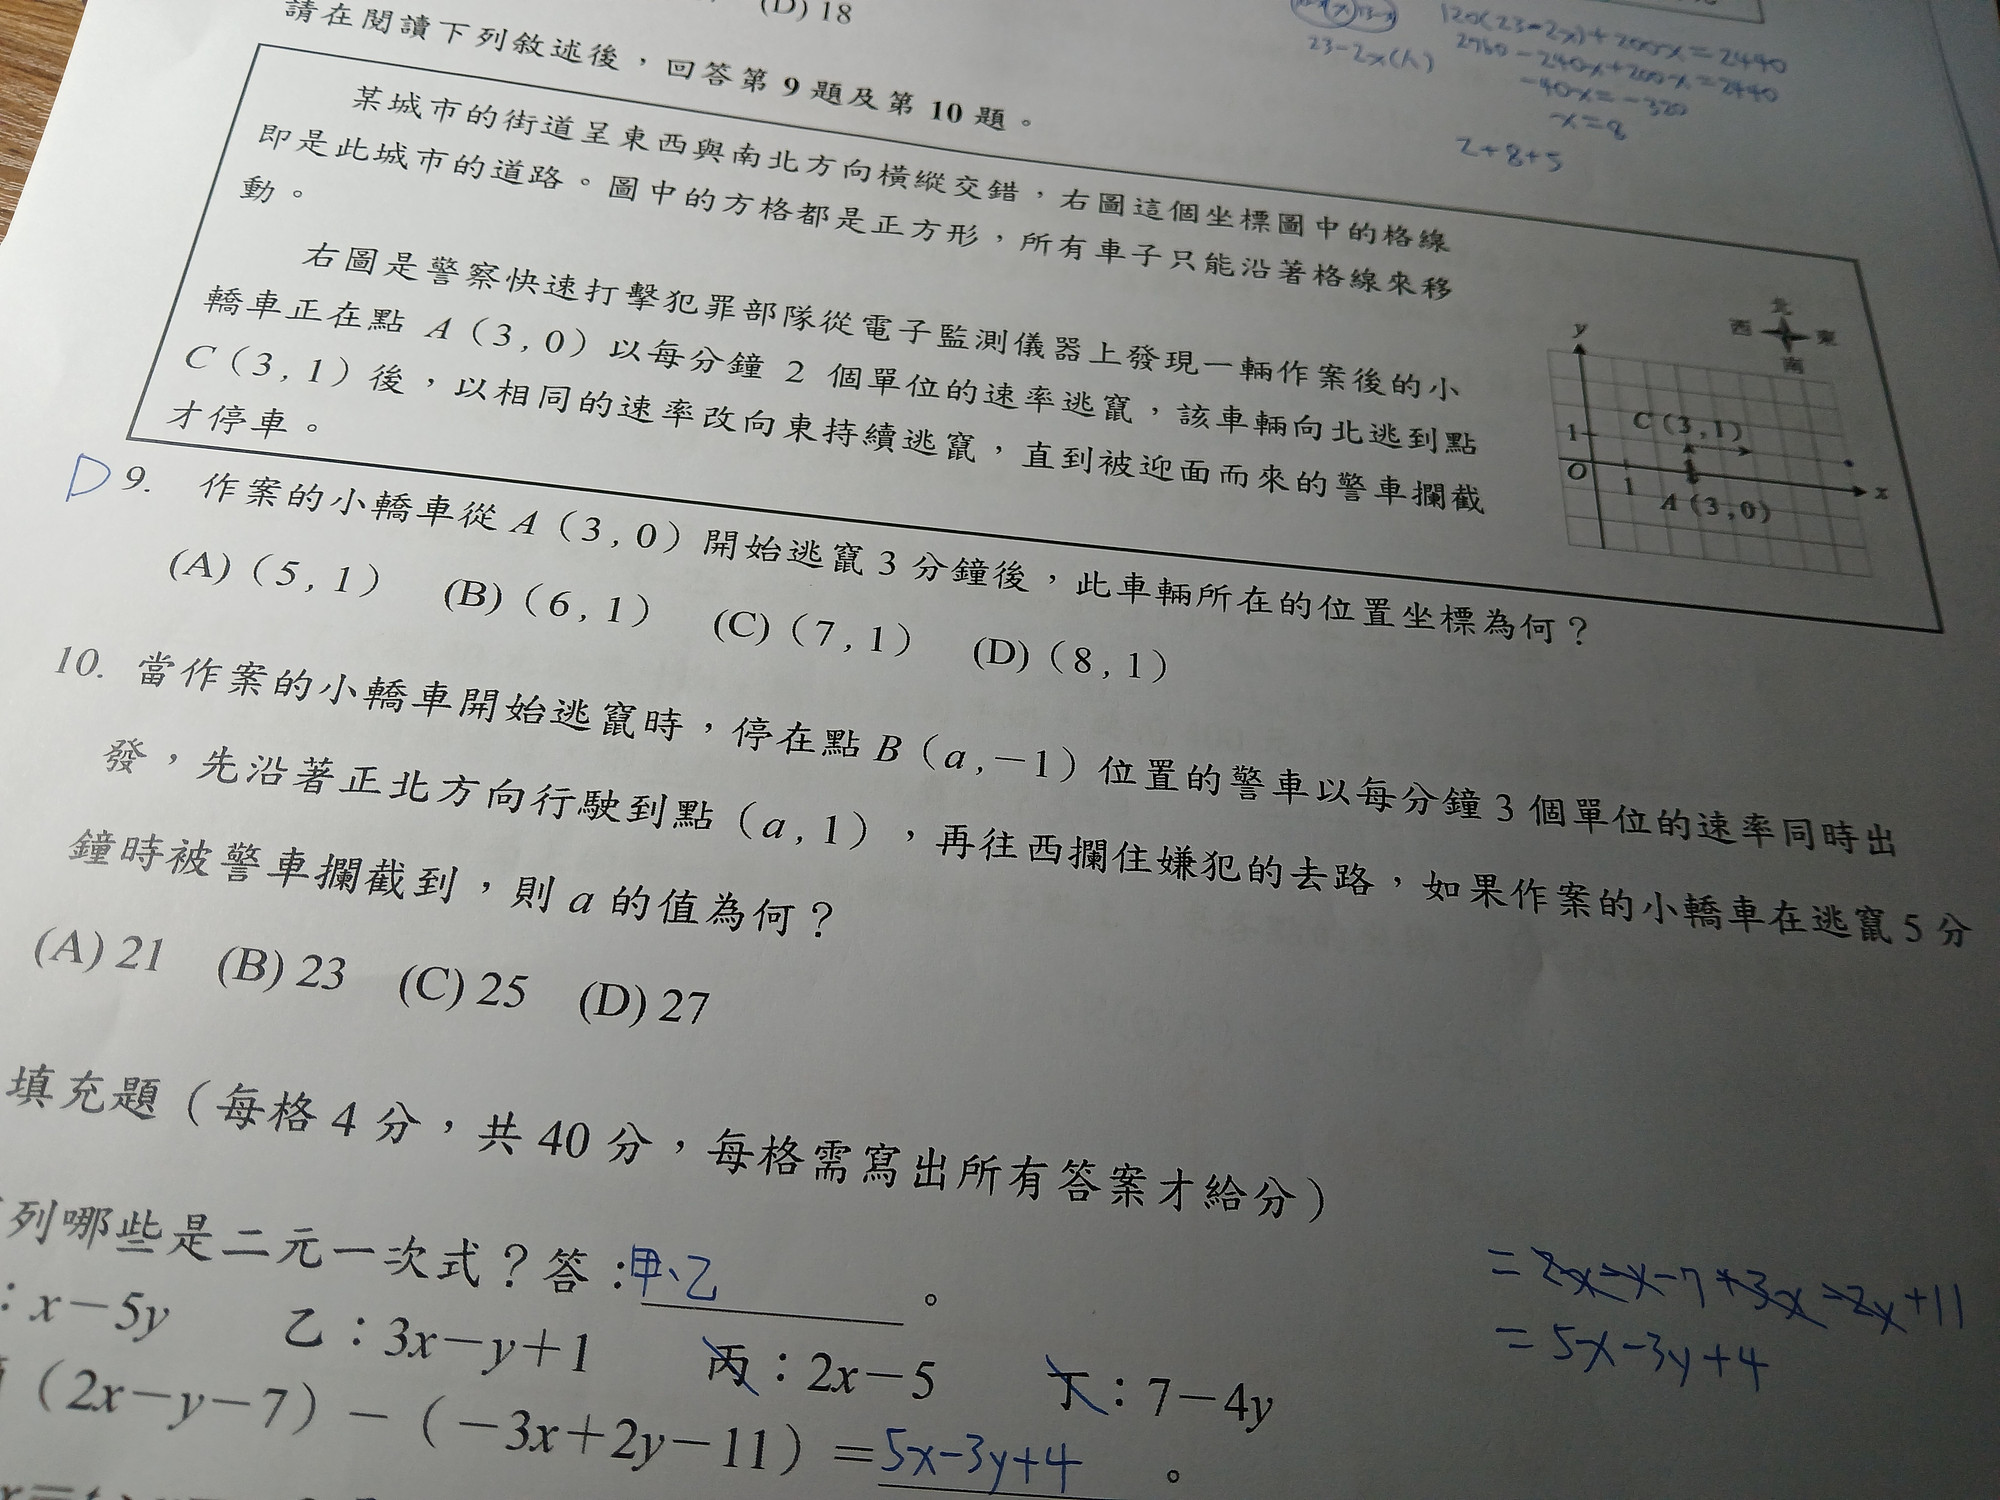 (D) 18
23-2x(人)
120(23-2x)+200x=2440
2760-240x+200x=2440
-40x=-320
x=8
2+8+5
請在閱讀下列敘述後，回答第 9 題及第 10 題。
某城市的街道呈東西與南北方向橫縱交錯，右圖這個坐標圖中的格線
即是此城市的道路。圖中的方格都是正方形，所有車子只能沿著格線來移
動。
右圖是警察快速打擊犯罪部隊從電子監測儀器上發現一輛作案後的小
轎車正在點 A（3 , 0）以每分鐘 2 個單位的速率逃竄，該車輛向北逃到點
C（3 , 1）後，以相同的速率改向東持續逃竄，直到被迎面而來的警車攔截
才停車。
北
西 東
南
y
1
C (3 , 1)
O 1 x
A (3 , 0)
D 9. 作案的小轎車從 A（3 , 0）開始逃竄 3 分鐘後，此車輛所在的位置坐標為何？
(A)（5 , 1） (B)（6 , 1） (C)（7 , 1） (D)（8 , 1）
10. 當作案的小轎車開始逃竄時，停在點 B（a ,－1）位置的警車以每分鐘 3 個單位的速率同時出
發，先沿著正北方向行駛到點（a , 1），再往西攔住嫌犯的去路，如果作案的小轎車在逃竄 5 分
鐘時被警車攔截到，則 a 的值為何？
(A) 21 (B) 23 (C) 25 (D) 27
填充題（每格 4 分，共 40 分，每格需寫出所有答案才給分）
列哪些是二元一次式？答：甲、乙。
：x－5y 乙：3x－y＋1 丙：2x－5 丁：7－4y
（2x－y－7）－（－3x＋2y－11）＝5x-3y+4。
=2x-y-7+3x-2y+11
=5x-3y+4